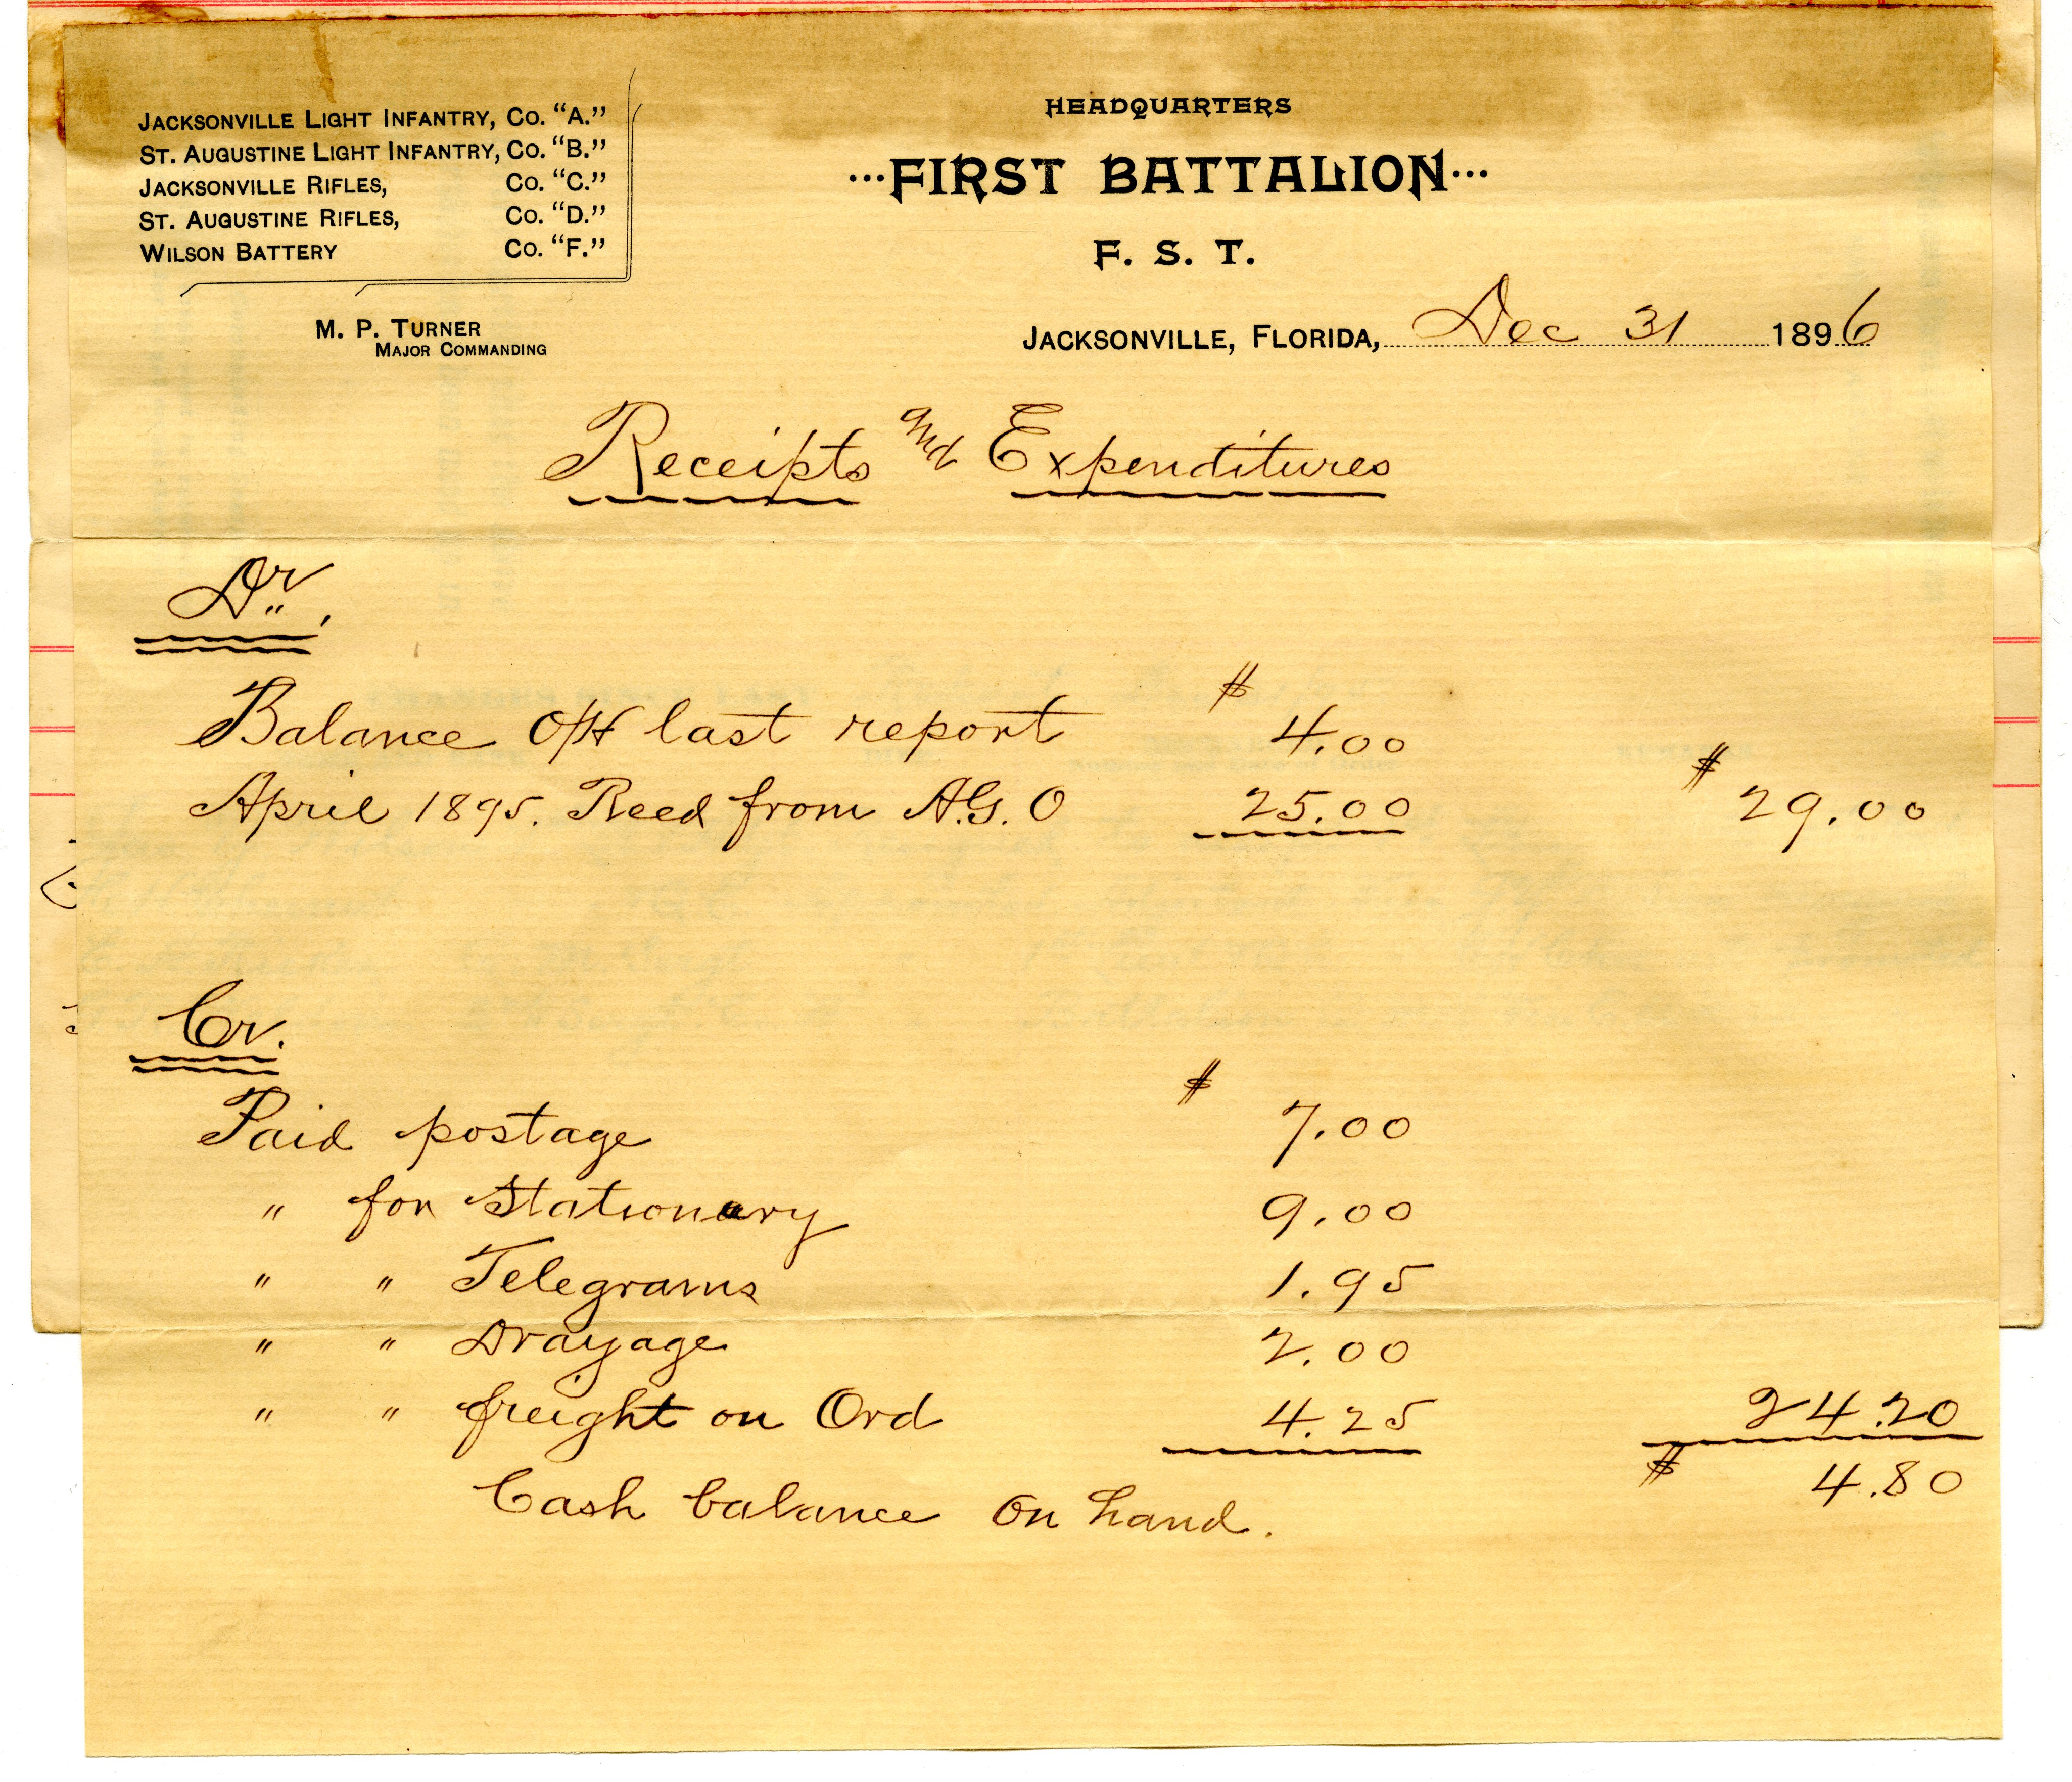 JACKSONVILLE LIGHT INFANTRY, CO. "A."
ST. AUGUSTINE LIGHT INFANTRY, CO. "B."
JACKSONVILLE RIFLES, CO. "C."
ST. AUGUSTINE RIFLES, CO. "D."
WILSON BATTERY CO. "F."
M. P. TURNER
MAJOR COMMANDING
HEADQUARTERS
···FIRST BATTALION···
F. S. T.
JACKSONVILLE, FLORIDA, Dec 31 1896
Receipts and Expenditures
Dr.
Balance O/H last report $ 4.00
April 1895. Recd from A.G.O 25.00 $ 29.00
Cr.
Paid postage $ 7.00
" for Stationary 9.00
" " Telegrams 1.95
" " Drayage 2.00
" " freight on Ord 4.25 24.20
Cash balance on hand. $ 4.80